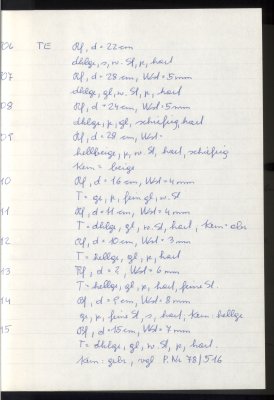 06 TE Rf, d = 22 cm
dklge, s, w. St, p, hart
07 Rf, d = 28 cm, Wd = 5 mm
dklge, gl, w. St, p, hart
08 Rf, d = 24 cm, Wd = 5 mm
dklge, p, gl, schiefrig, hart
09 Rf, d = 28 cm, Wd =
hellbeige, p, w. St, hart, schiefrig
Kern = beige
10 Rf, d = 16 cm, Wd = 4 mm
T = gr, p, fein gl, w. St
11 Rf, d = 11 cm, Wd = 4 mm
T = dklge, gl, w. St, hart, Kern =
12 Rf, d = 10 cm, Wd = 3 mm
T = hellge, gl, p, hart
13 Rf, d = ?, Wd = 6 mm
T = hellge, gl, p, hart, feine St.
14 Rf, d = 9 cm, Wd = 8 mm
gr, p, feine St, s, hart, Kern: hellge
15 Rf, d = 15 cm, Wd = 7 mm
T = dklge, gl, w. St, p, hart.
Kern: gebr, vgl P. Nr 78/516